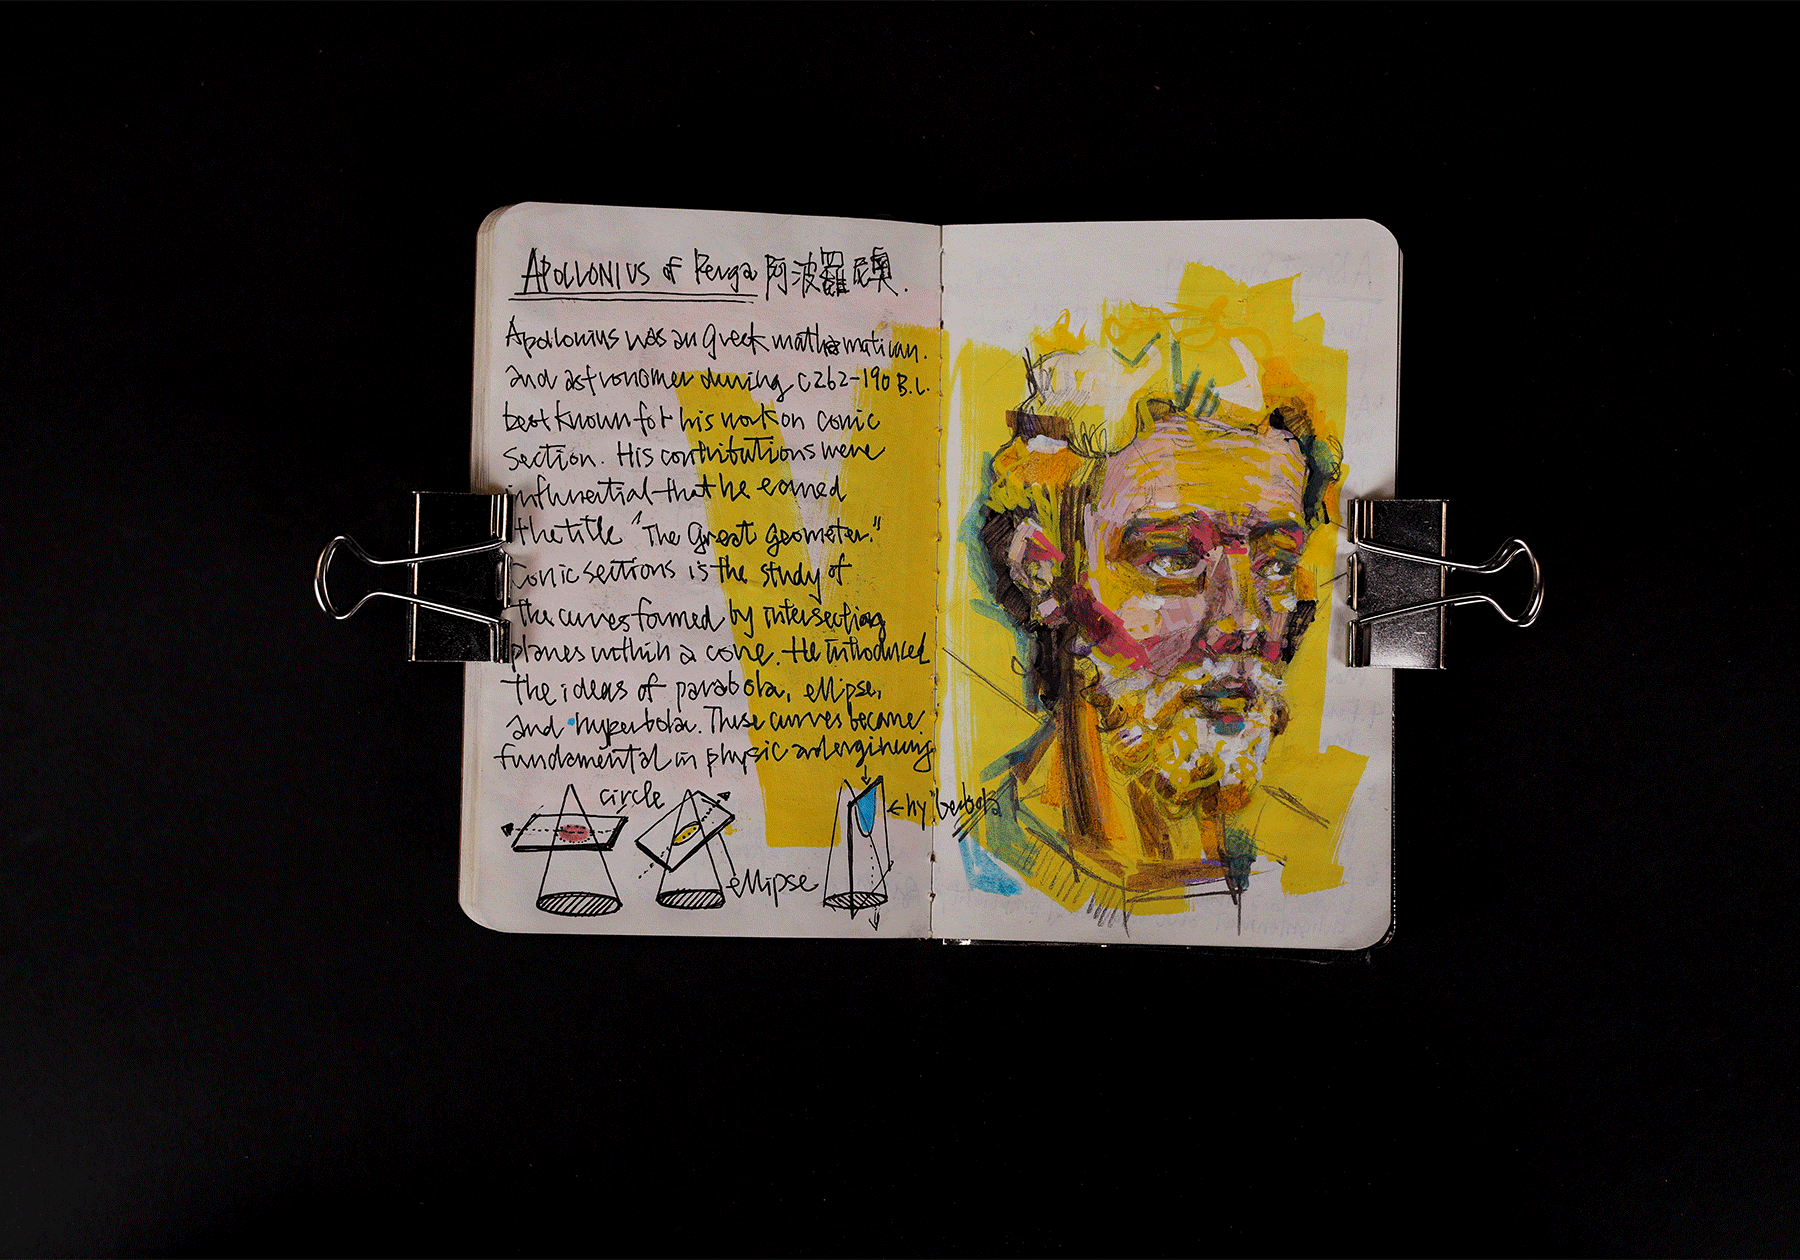 APOLLONIUS of Perga 阿波羅尼奧.
Apollonius was an Greek mathematician.
and astronomer during c262-190 B.C.
best known for his work on conic
section. His contributions were
influential that he earned
the title "The Great Geometer."
Conic sections is the study of
the curves formed by intersecting
planes within a cone. He introduced
the ideas of parabola, ellipse,
and hyperbola. These curves became
fundamental in physic and engineering
circle
ellipse
← hyperbola